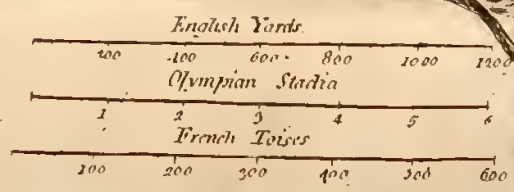 English Yards.
200 400 600 800 1000 1200
Olympian Stadia
1 2 3 4 5 6
French Toises
100 200 300 400 500 600